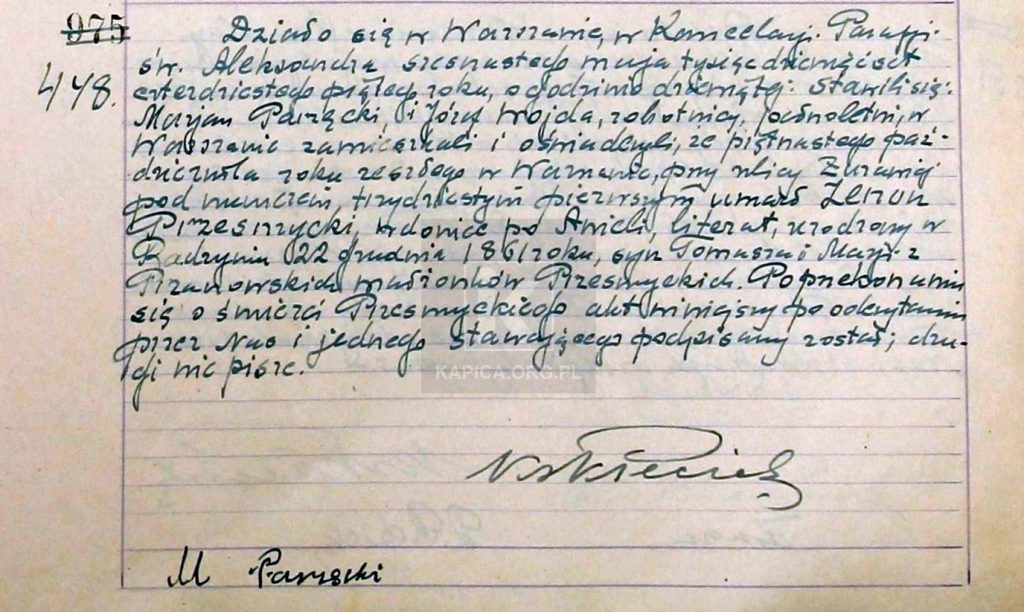 975
448.
Działo się w Warszawie, w Kancelaryi Parafji
św. Aleksandra szesnastego maja tysiąc dziewięćset
czterdziestego piątego roku, o godzinie dziewiątej: Stawili się:
Maryan Parzącki, i Józef Wojda, robotnicy, pełnoletni, w
Warszawie zamieszkali i oświadczyli, że piętnastego paź-
dziernika roku zeszłego w Warszawie, przy ulicy Żurawiej
pod numerem, trzydziestym pierwszym umarł Zenon
Przesmycki, wdowiec po Anieli, literat, urodzony w
Radzyniu 22 grudnia 1861 roku, syn Tomasza i Maryi z
małżonków Przesmyckich. Po przekonaniu
się o śmierci Przesmyckiego akt niniejszy po odczytaniu
przez Nas i jednego stawającego podpisany został; dru-
gi nie pisze.
KAPICA.ORG.PL
M Parzęcki